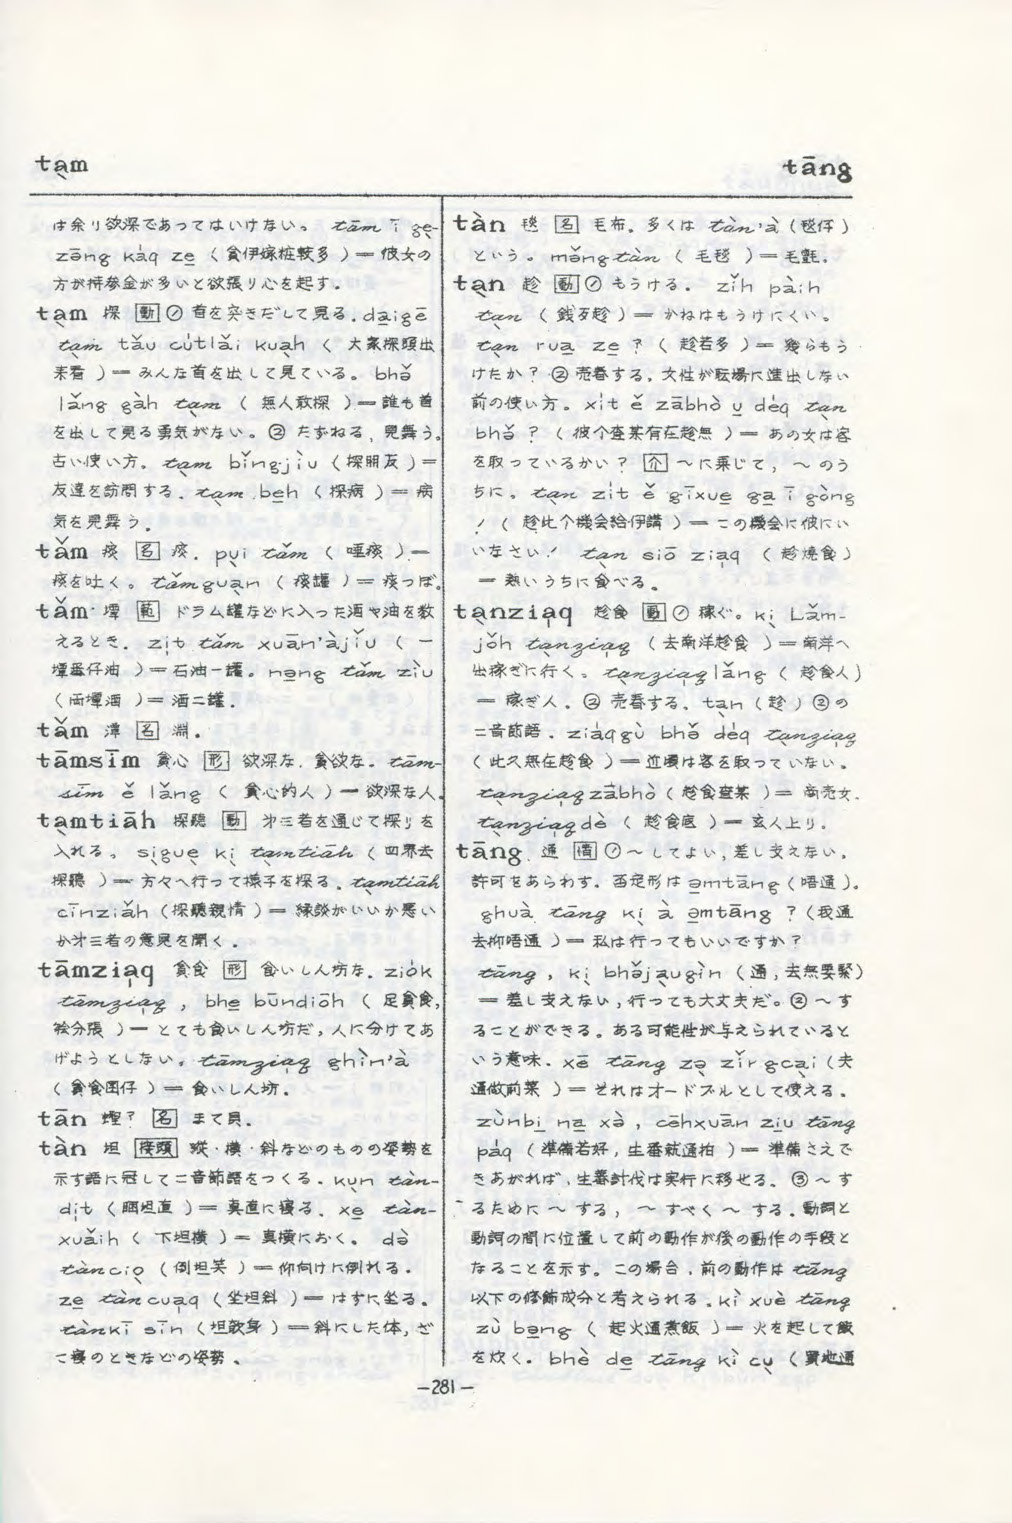 ta̖m
tāng
は余り欲深であってはいけない。 tām ī ge̖-
zōng káq ze̲ (貪伊嫁粧較多)=彼女の
方が持参金が多いと欲張り心を起す.
ta̖m 探 動 ① 首を突きだして見る. da̲igē
ta̖m tǎu cu̍tlǎi kua̖h (大家探頭出
来看)=みんな首を出して見ている。 bhǒ
lǎng gàh ta̖m (無人敢探)=誰も首
を出して見る勇気がない。② たずねる, 見舞う。
古い使い方。 ta̖m bǐng·jìu (探朋友)=
友達を訪問する. ta̖m be̲h (探病)=病
気を見舞う.
tǎm 痰 名 痰. pu̖i tǎm (唾痰)=
痰を吐く。 tǎmgua̖n (痰罐)=痰つぼ.
tǎm 壜 範 ドラム罐などに入った酒や油を数
えるとき. zi̍t tǎm xuān'àjǐu (一
壜番仔油)=石油一罐。 nə̲ng tǎm zìu
(両壜酒)=酒二罐.
tǎm 潭 名 淵.
tāmsīm 貪心 形 欲深な. 貪欲な. tām-
sīm ě lǎng (貪心的人)=欲深な人.
ta̖mtiāh 探聴 動 才三者を通じて探りを
入れる。 si̖gue̖ ki̖ ta̖mtiāh (四界去
探聴)=方々へ行って様子を探る. ta̖mtiāh
cīnziǎh (探聴親情)=縁談がいいか悪い
か才三者の意見を聞く.
tāmzia̖q 貪食 形 食いしん坊な. ziók
tāmzia̖q, bhe̲ būndiōh (足貪食,
袂分張)=とても食いしん坊だ,人に分けてあ
げようとしない。 tāmzia̖q ghìn'à
(貪食囡仔)=食いしん坊.
tān 蟶? 名 まて貝.
tàn 坦 接頭 縦·横·斜などのものの姿勢を
示す語に冠して二音節語をつくる. ku̖n tàn-
di̍t (睏坦直)=真直に寝る. xe̲ tàn-
xuǎih (下坦横)=真横におく。 də̀
tàncio̖ (倒坦笑)=仰向けに倒れる.
ze̲ tàncua̍q (坐坦斜)=はすに坐る.
tànkī sīn (坦敧身)=斜にした体,ざ
こ寝のときなどの姿勢.
tàn 毯 名 毛布. 多くは tàn'à (毯仔)
という。 mǒngtàn (毛毯)=毛氈.
ta̖n 趁 動 ① もうける. zǐh pàih
ta̖n (銭歹趁)=かねはもうけにくい。
ta̖n rua̲ ze̲? (趁若多)=幾らもう
けたか? ② 売春する. 女性が職場に進出しない
前の使い方。 xi̍t ě zābhò u̲ déq ta̖n
bhǒ? (彼个査某有在趁無)=あの女は客
を取っているかい? 介 〜に乗じて, 〜のう
ちに。 ta̖n zi̍t ě gīxue̲ ga̲ ī gòng
! (趁此个機会給伊講)=この機会に彼にい
いなさい! ta̖n siō zia̍q (趁燒食)
=熱いうちに食べる。
ta̖nzia̍q 趁食 動 ① 稼ぐ。 ki̖ Lǎm-
jǒh ta̖nzia̍q (去南洋趁食)=南洋へ
出稼ぎに行く。 ta̖nzia̍qlǎng (趁食人)
=稼ぎ人. ② 売春する. ta̖n (趁) ②の
二音節語. ziáqgù bhǒ déq ta̖nzia̍q
(此久無在趁食)=近頃は客を取っていない。
ta̖nzia̍qzābhò (趁食査某)=商売女.
ta̖nzia̍qdè (趁食底)=玄人上り.
tāng 通 情 ① 〜してよい, 差し支えない.
許可をあらわす. 否定形は əmtāng (唔通).
ghuà tāng ki̖ à ə̲mtāng? (我通
去抑唔通)=私は行ってもいいですか?
tāng, ki̖ bhǒja̖ugìn (通,去無要緊)
=差し支えない,行っても大丈夫だ。② 〜す
ることができる. ある可能性が与えられていると
いう意味. xē tāng zə̖ zǐngca̖i (夫
通做前菜)=それはオードブルとして使える.
zùnbi̲ na̲ xə̀, cēhxuān zi̲u tāng
páq (準備若好,生番就通拍)=準備さえで
きあがれば,生番討伐は実行に移せる. ③ 〜す
るために〜する, 〜すべく〜する. 動詞と
動詞の間に位置して前の動作が後の動作の手段と
なることを示す。この場合,前の動作は tāng
以下の修飾成分と考えられる. kì xuè tāng
zù bə̲ng (起火通煮飯)=火を起して飯
を炊く. bhè de̲ tāng kì cu̖ (買地通
—281—